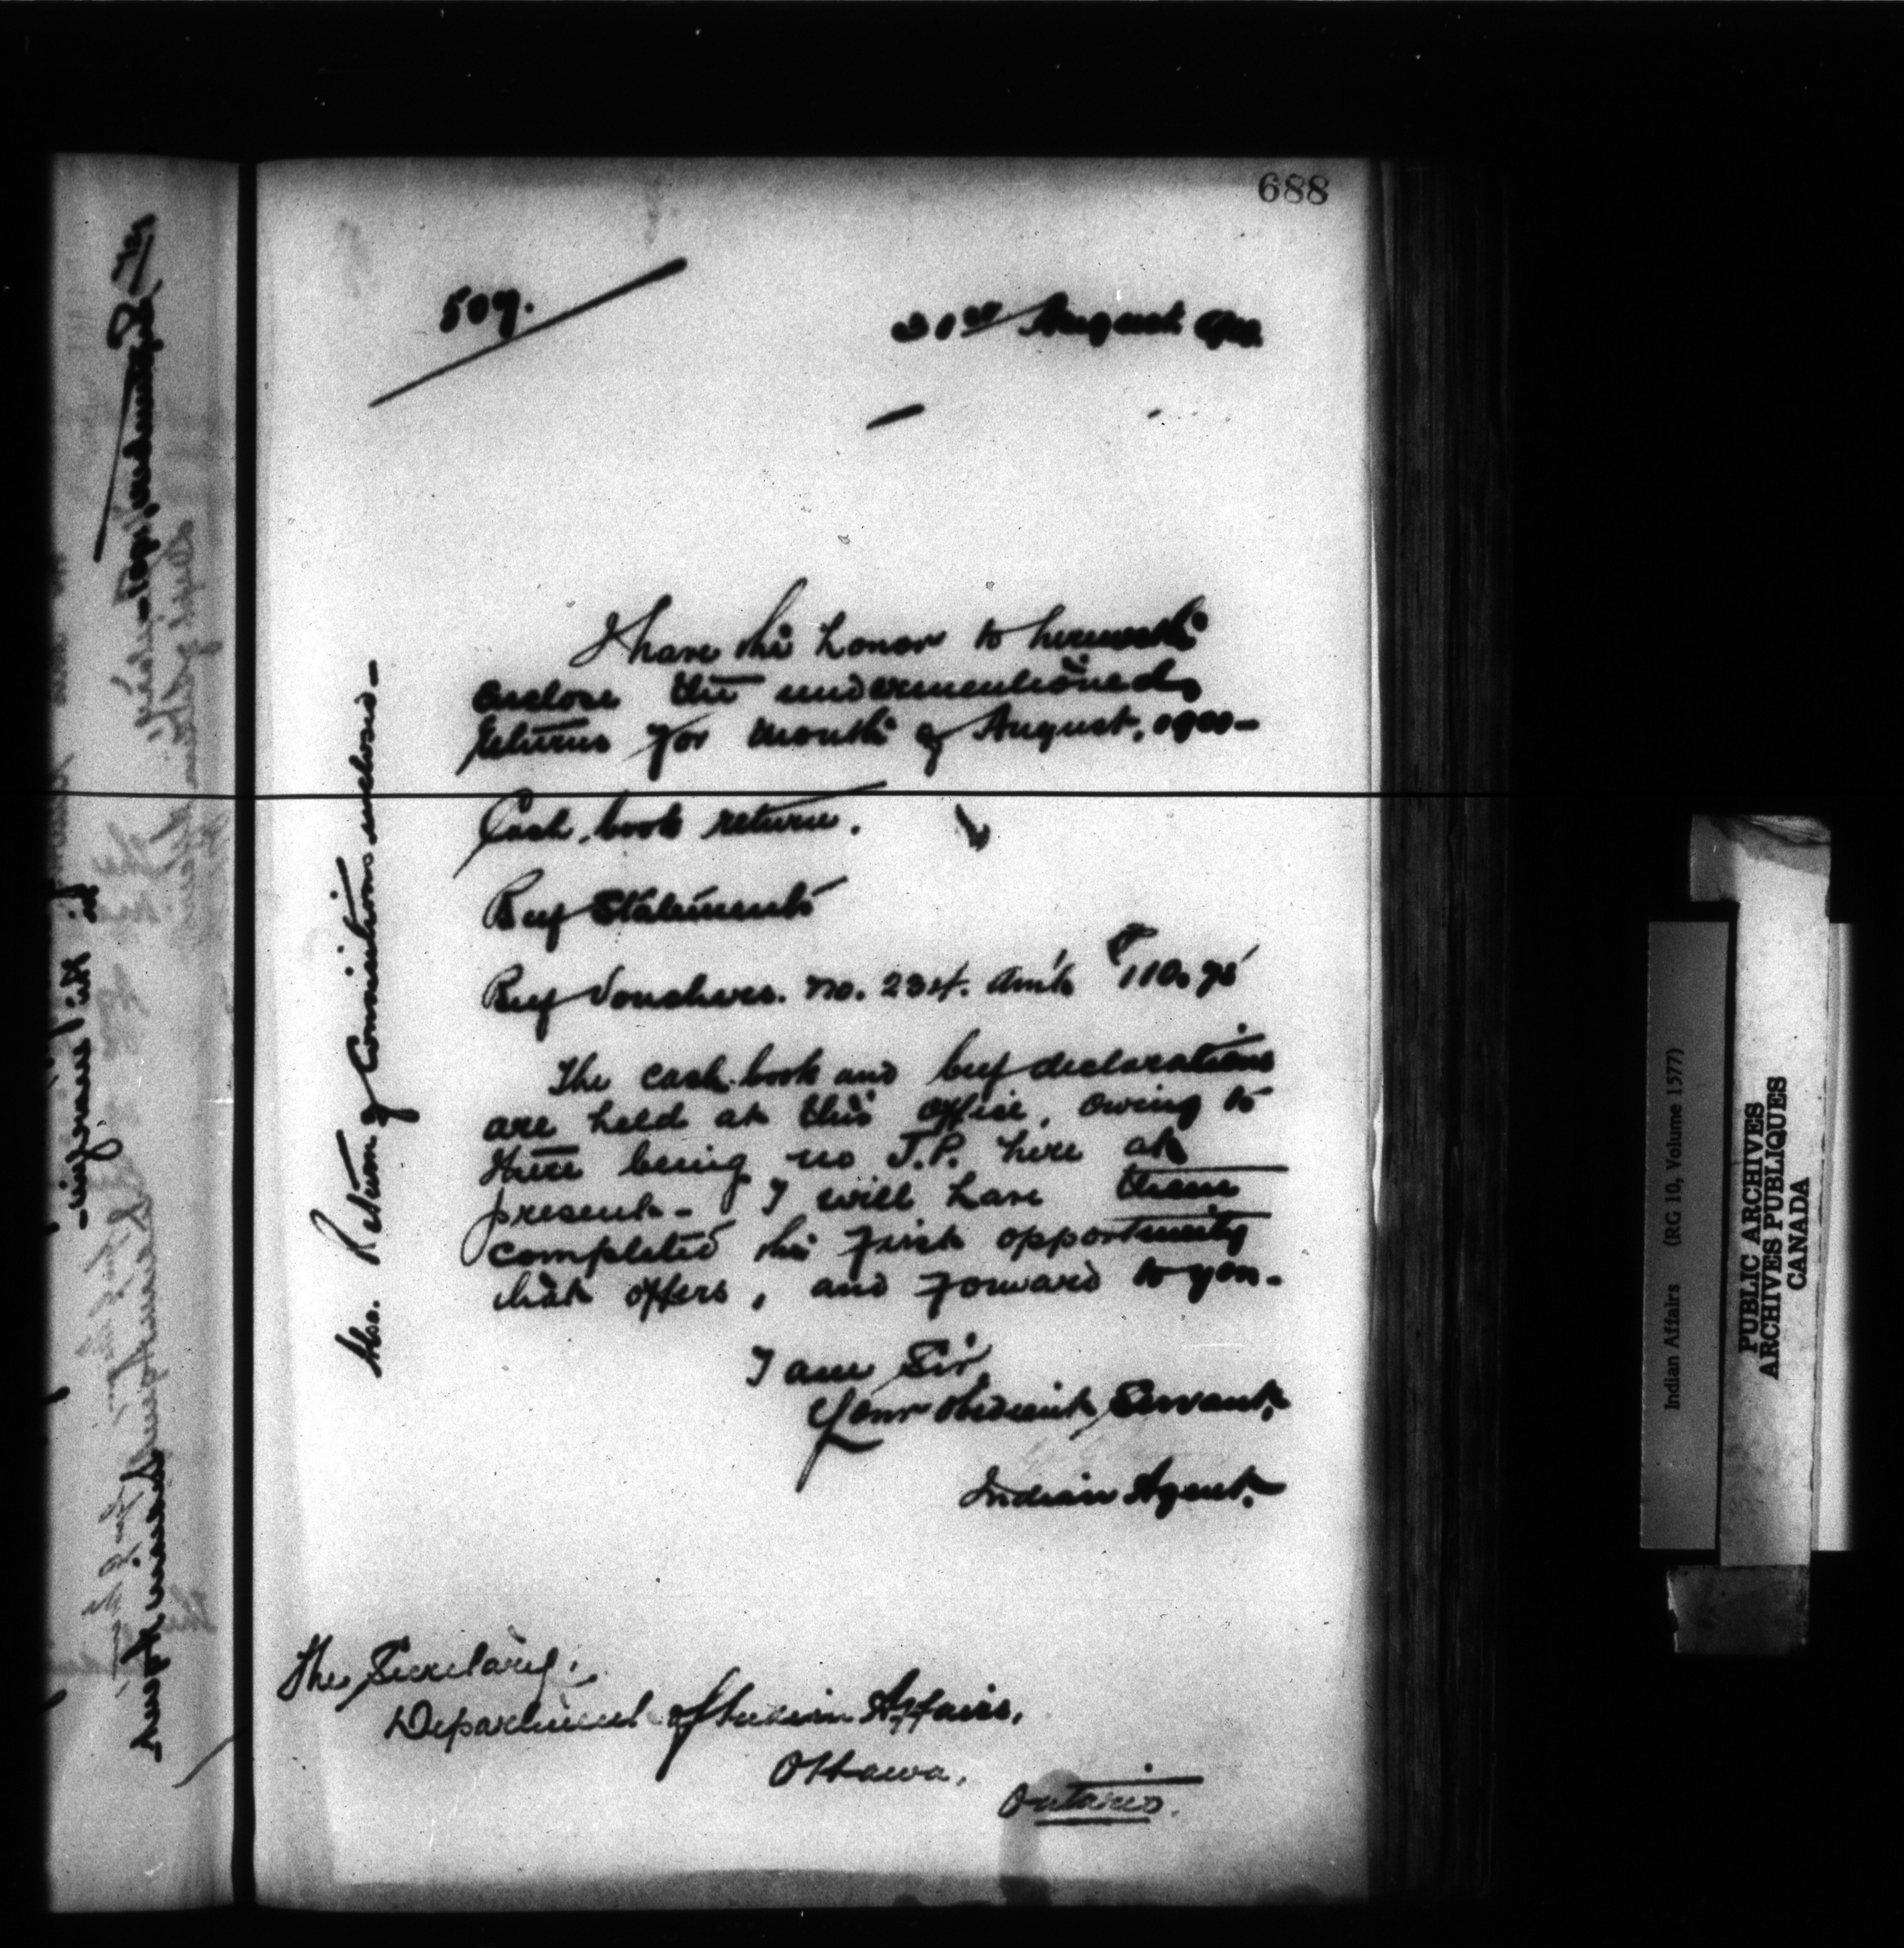 688
507.
31st August
I have the honor to herewith
enclose the undermentioned
returns for month of August, 1900-
Cash book return.
Beef Statements
Beef Vouchers. No. 234. Am't $110.75
The cash book and beef declarations
are held at this office, owing to
there being no J.P. here at
present- I will have them
completed the first opportunity
that offers, and forward to you-
I am Sir
Your obedient Servant,
Indian Agent.
The Secretary,
Department of Indian Affairs,
Ottawa,
Ontario.
Also. Return of Commutations enclosed-
Indian Affairs (RG 10, Volume 1577)
PUBLIC ARCHIVES
ARCHIVES PUBLIQUES
CANADA